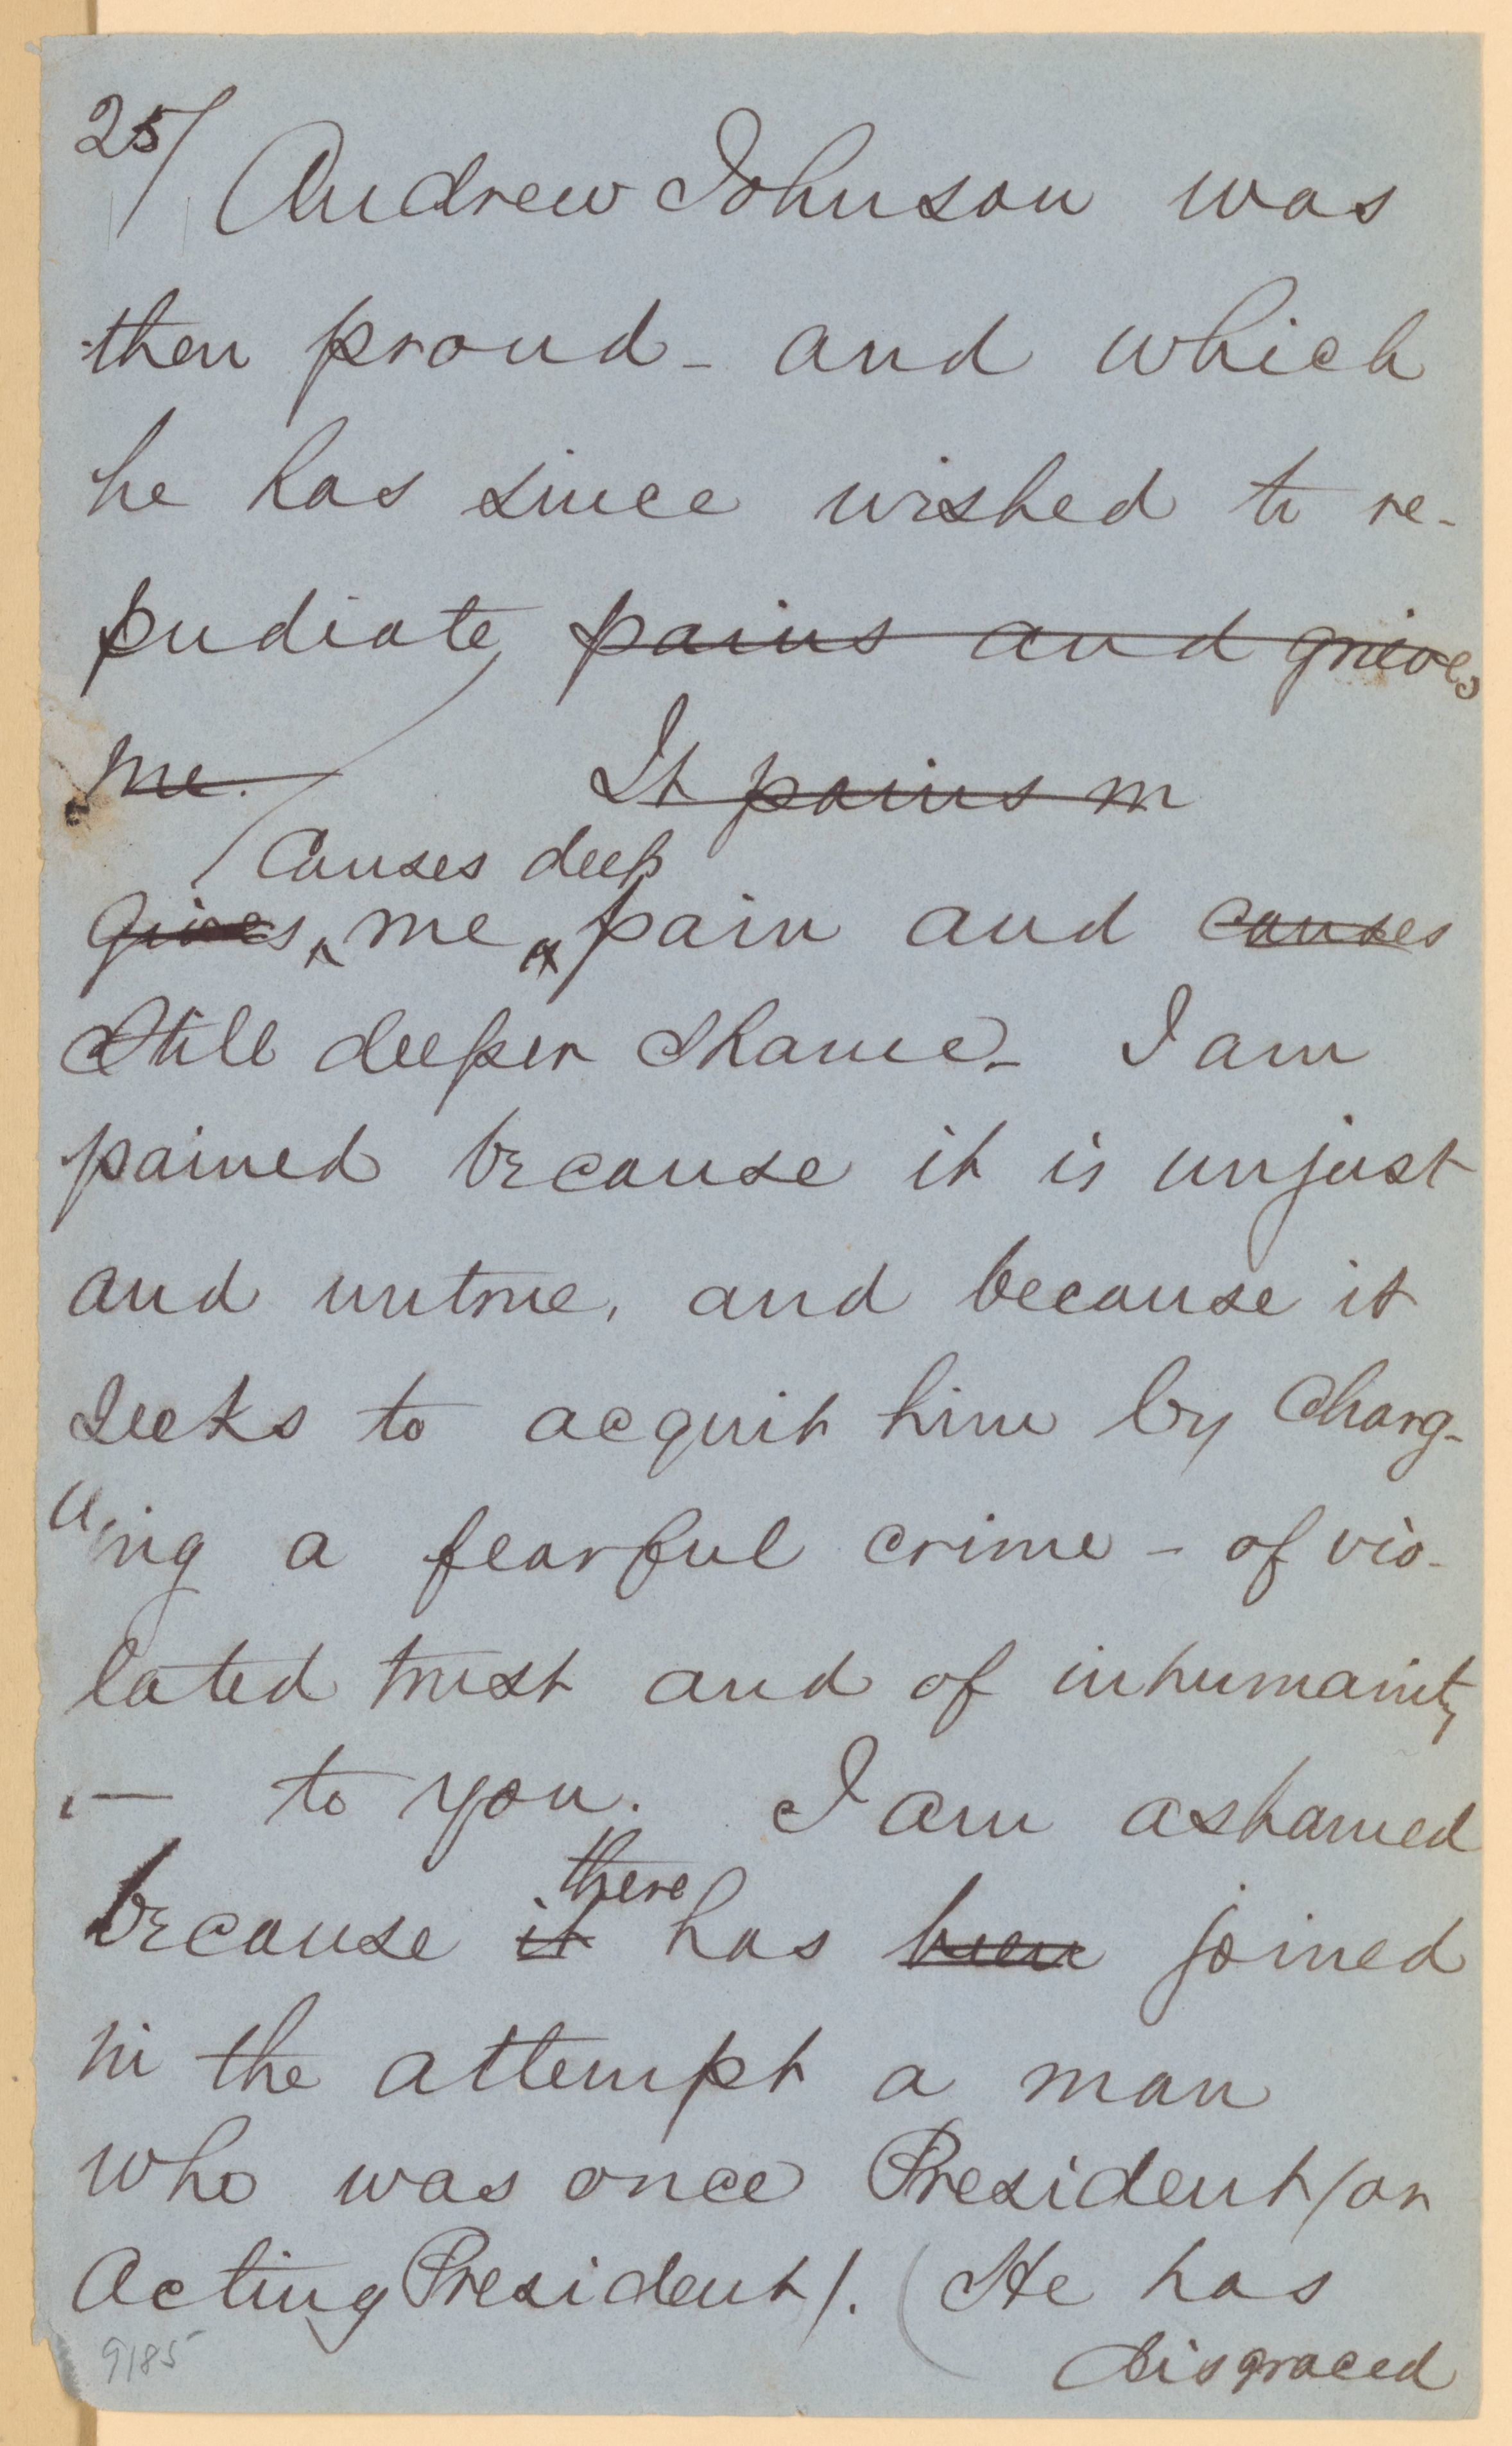 25/ Andrew Johnson was
then proud - and which
he has since wished to re-
pudiate, pains and grieves
me. It pains m
Causes deep
gives me pain and causes
still deeper shame - I am
pained because it is unjust
and untrue, and because it
seeks to acquit him by charg-
ing a fearful crime - of vio-
lated trust and of inhumanity
— to you. I am ashamed
there
because it has been joined
in the attempt a man
who was once President/or
Acting President/. (He has
disgraced
9185